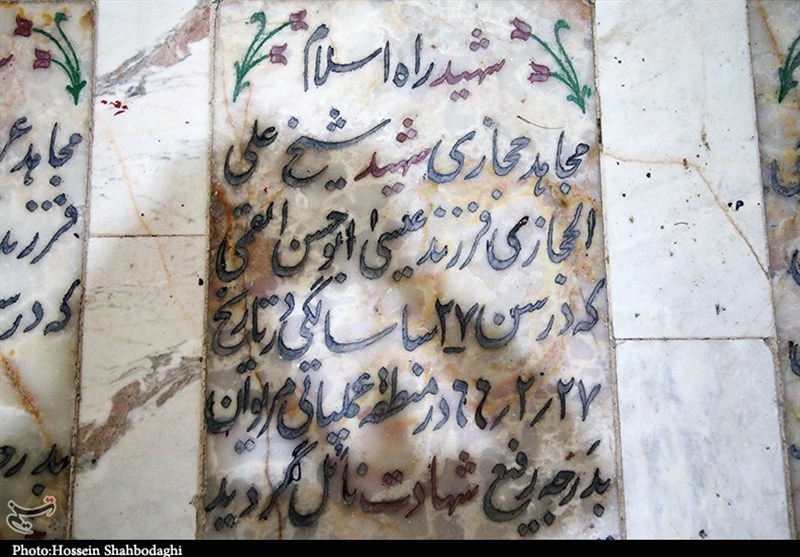 شهید راه اسلام
مجاهد حجازی شهید شیخ علی
الحجازی فرزند عیسی ابوحسن القمی
که در سن ۲۷ سالگی در تاریخ
۶۶٫۲٫۲۷ در منطقه عملیاتی مریوان
بدرجه رفیع شهادت نائل گردید
مجاهد
فرزند
که در سن
بدر
تسنیم
Photo:Hossein Shahbodaghi